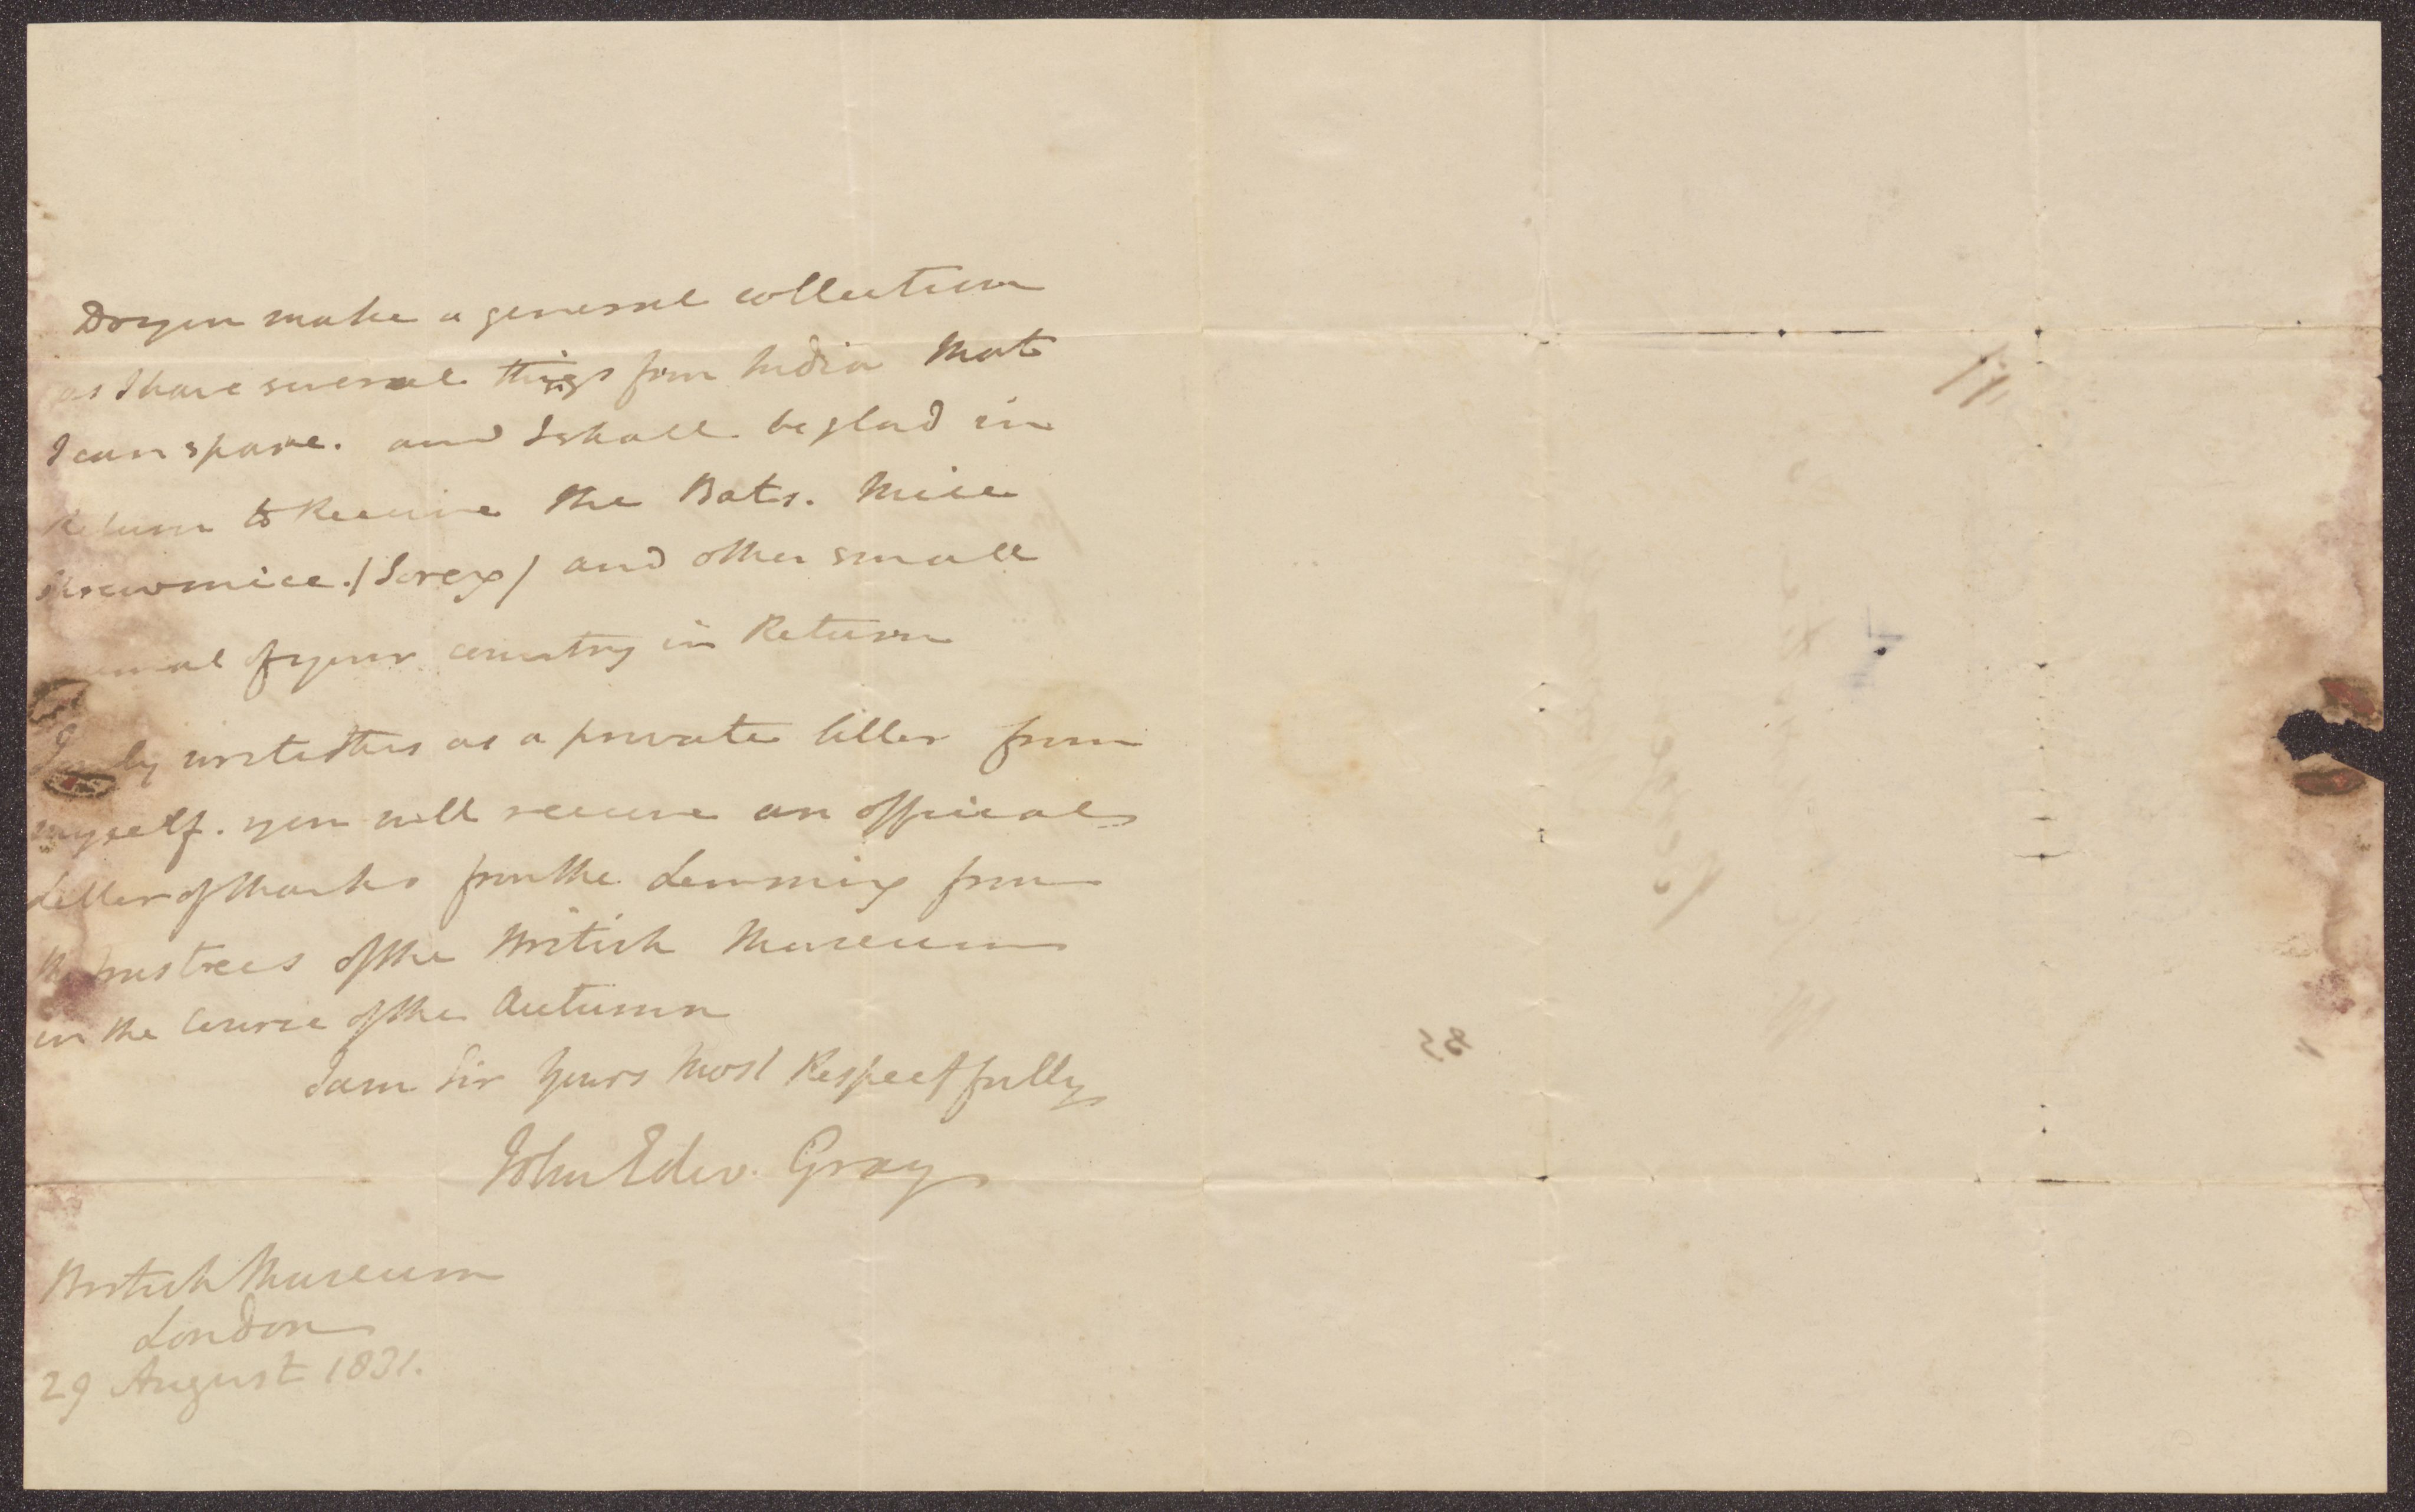 Do you make a general collection
as I have several things from India that
I can spare. and I shall be glad in
Return to Receive the Bats. Mice
Shrewmice. (Sorex) and other small
animal of your country in Return
I only write this as a private letter from
myself. you will receive an offical
Letter of thanks from the Lemming from
the trustees of the British Museum
in the course of the Autumn
I am Sir Yours Most Respectfully
John Edw. Gray
British Museum
London
29 August 1831.
85